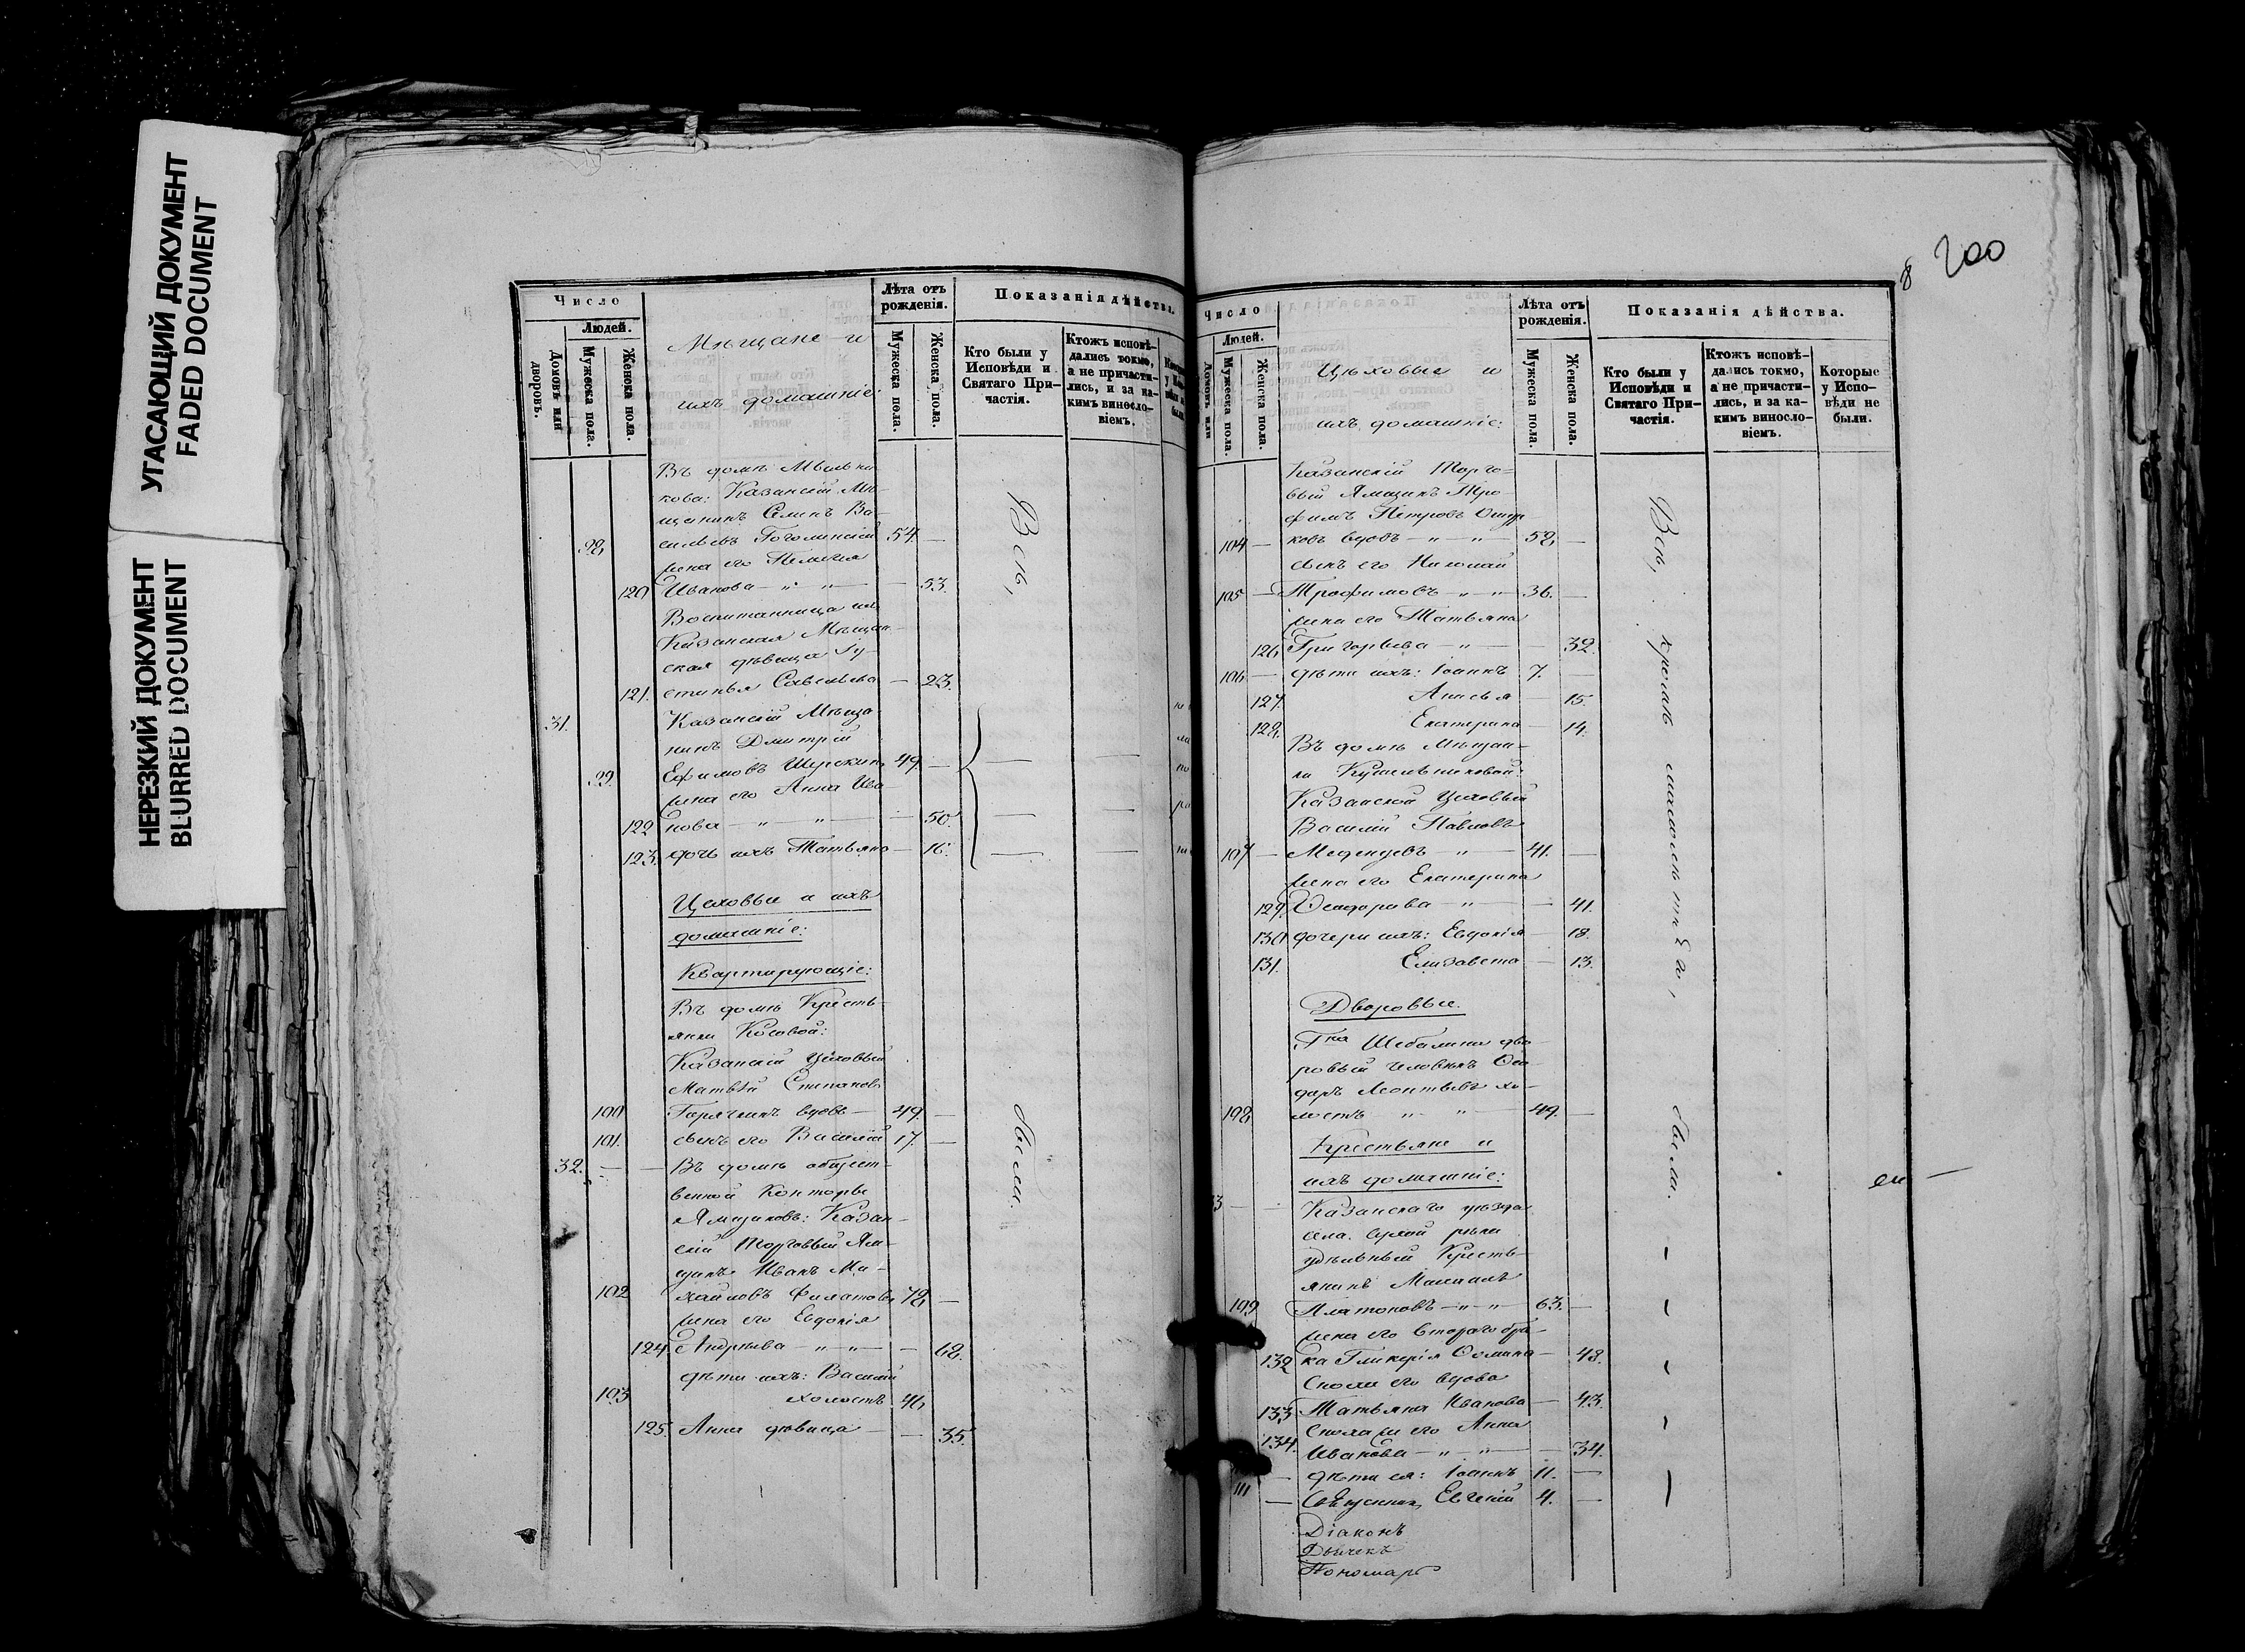 УГАСАЮЩИЙ ДОКУМЕНТ
FADED DOCUMENT
НЕРЕЗКИЙ ДОКУМЕНТ
BLURRED DOCUMENT
Число
Людей.
Домовъ или дворовъ.
Мужеска пола.
Женска пола.
Мѣщане и
ихъ домашніе:
Лѣта отъ рожденія.
Мужеска пола.
Женска пола.
Показанія дѣйства.
Кто были у Исповѣди и Святаго Причастія.
Ктожъ исповѣдались токмо, а не причастились, и за какимъ винословіемъ.
Въ домѣ Мыльни
кова: Казанскій Мѣ
щанинъ Семенъ Ва-
98 сильевъ Гоголинскій 54. —
жена его Пелагея
120 Иванова — " — " — — 53.
Воспитанница ихъ
Казанская Мѣщан-
ская дѣвица Іу-
121. стинья Савельева — 23.
31. Казанскій Мѣща-
нинъ Дмитрій
99. Ефимовъ Шерокинъ 49. —
жена его Анна Ива
122 нова — " — " — — 50.
123. дочь ихъ Татьяна — 16.
Всѣ,
были.
Цеховые и ихъ
домашніе:
Квартирующіе:
Въ домѣ Кресть-
янки Косовой:
Казанскій Цеховый
Матвѣй Степановъ
100 Горячкинъ вдовъ — 49. —
101. сынъ его Василій 17. —
32. — — Въ домѣ общест-
венной Конторы
Ямщиковъ: Казан-
скій Торговый Ям-
щикъ Иванъ Ми-
102 хайловъ Филатовъ 78, —
жена его Евдокія
124. Андреева — " — " — — 68.
дѣти ихъ: Василій
103 холостъ 46
125. Анна дѣвица — — 35.
8 200
Число
Людей.
Домовъ или
Мужеска пола.
Женска пола.
Цѣховые и
ихъ домашніе:
Лѣта отъ рожденія.
Мужеска пола.
Женска пола.
Показанія дѣйства.
Кто были у Исповѣди и Святаго Причастія.
Ктожъ исповѣдались токмо, а не причастились, и за какимъ винословіемъ.
Которые у Исповѣди не были.
Казанскій Торго-
вый Ямщикъ Тро
фимъ Петровъ
104 — ковъ вдовъ — " — " — 58, —
сынъ его Николай
105 — Трофимовъ — " — " 36. —
жена его Татьяна
126 Григорьева — " — — 32.
106 — дѣти ихъ: Іоаннъ 7. —
127. Анисья — 15.
128, Екатерина — 14.
Въ домѣ Мѣщан-
ки
Казанской Цеховый
Василій Павловъ
107 — Меденцевъ — " — 41. —
жена его Екатерина
129. Ѳедорова — " — — 41.
130 дочери ихъ: Евдокія — 18.
131. Елизавета — 13.
Всѣ, кромѣ малолѣтнѣй,
были.
Дворовые.
Г-на Шебалина дво-
ровый человѣкъ Ѳео
доръ Леонтьевъ хо-
108 лостъ " — " — 49. —
Крестьяне и
ихъ домашніе:
33 — — Казанскаго уѣзда
села Сухой рѣки
удѣльный Кресть-
янинъ Максимъ
109 Платоновъ — " — " — 63. —
жена его втораго бра-
132 ка Гликерія Ѳомина — 48.
Сноха его вдова
133 Татьяна Иванова — 43.
Сноха его Анна
134. Иванова — " — " — — 34.
— дѣти ея: Іоаннъ 11. —
111 — Евгеній 4. —
Діаконъ
Дьячекъ
Пономарь